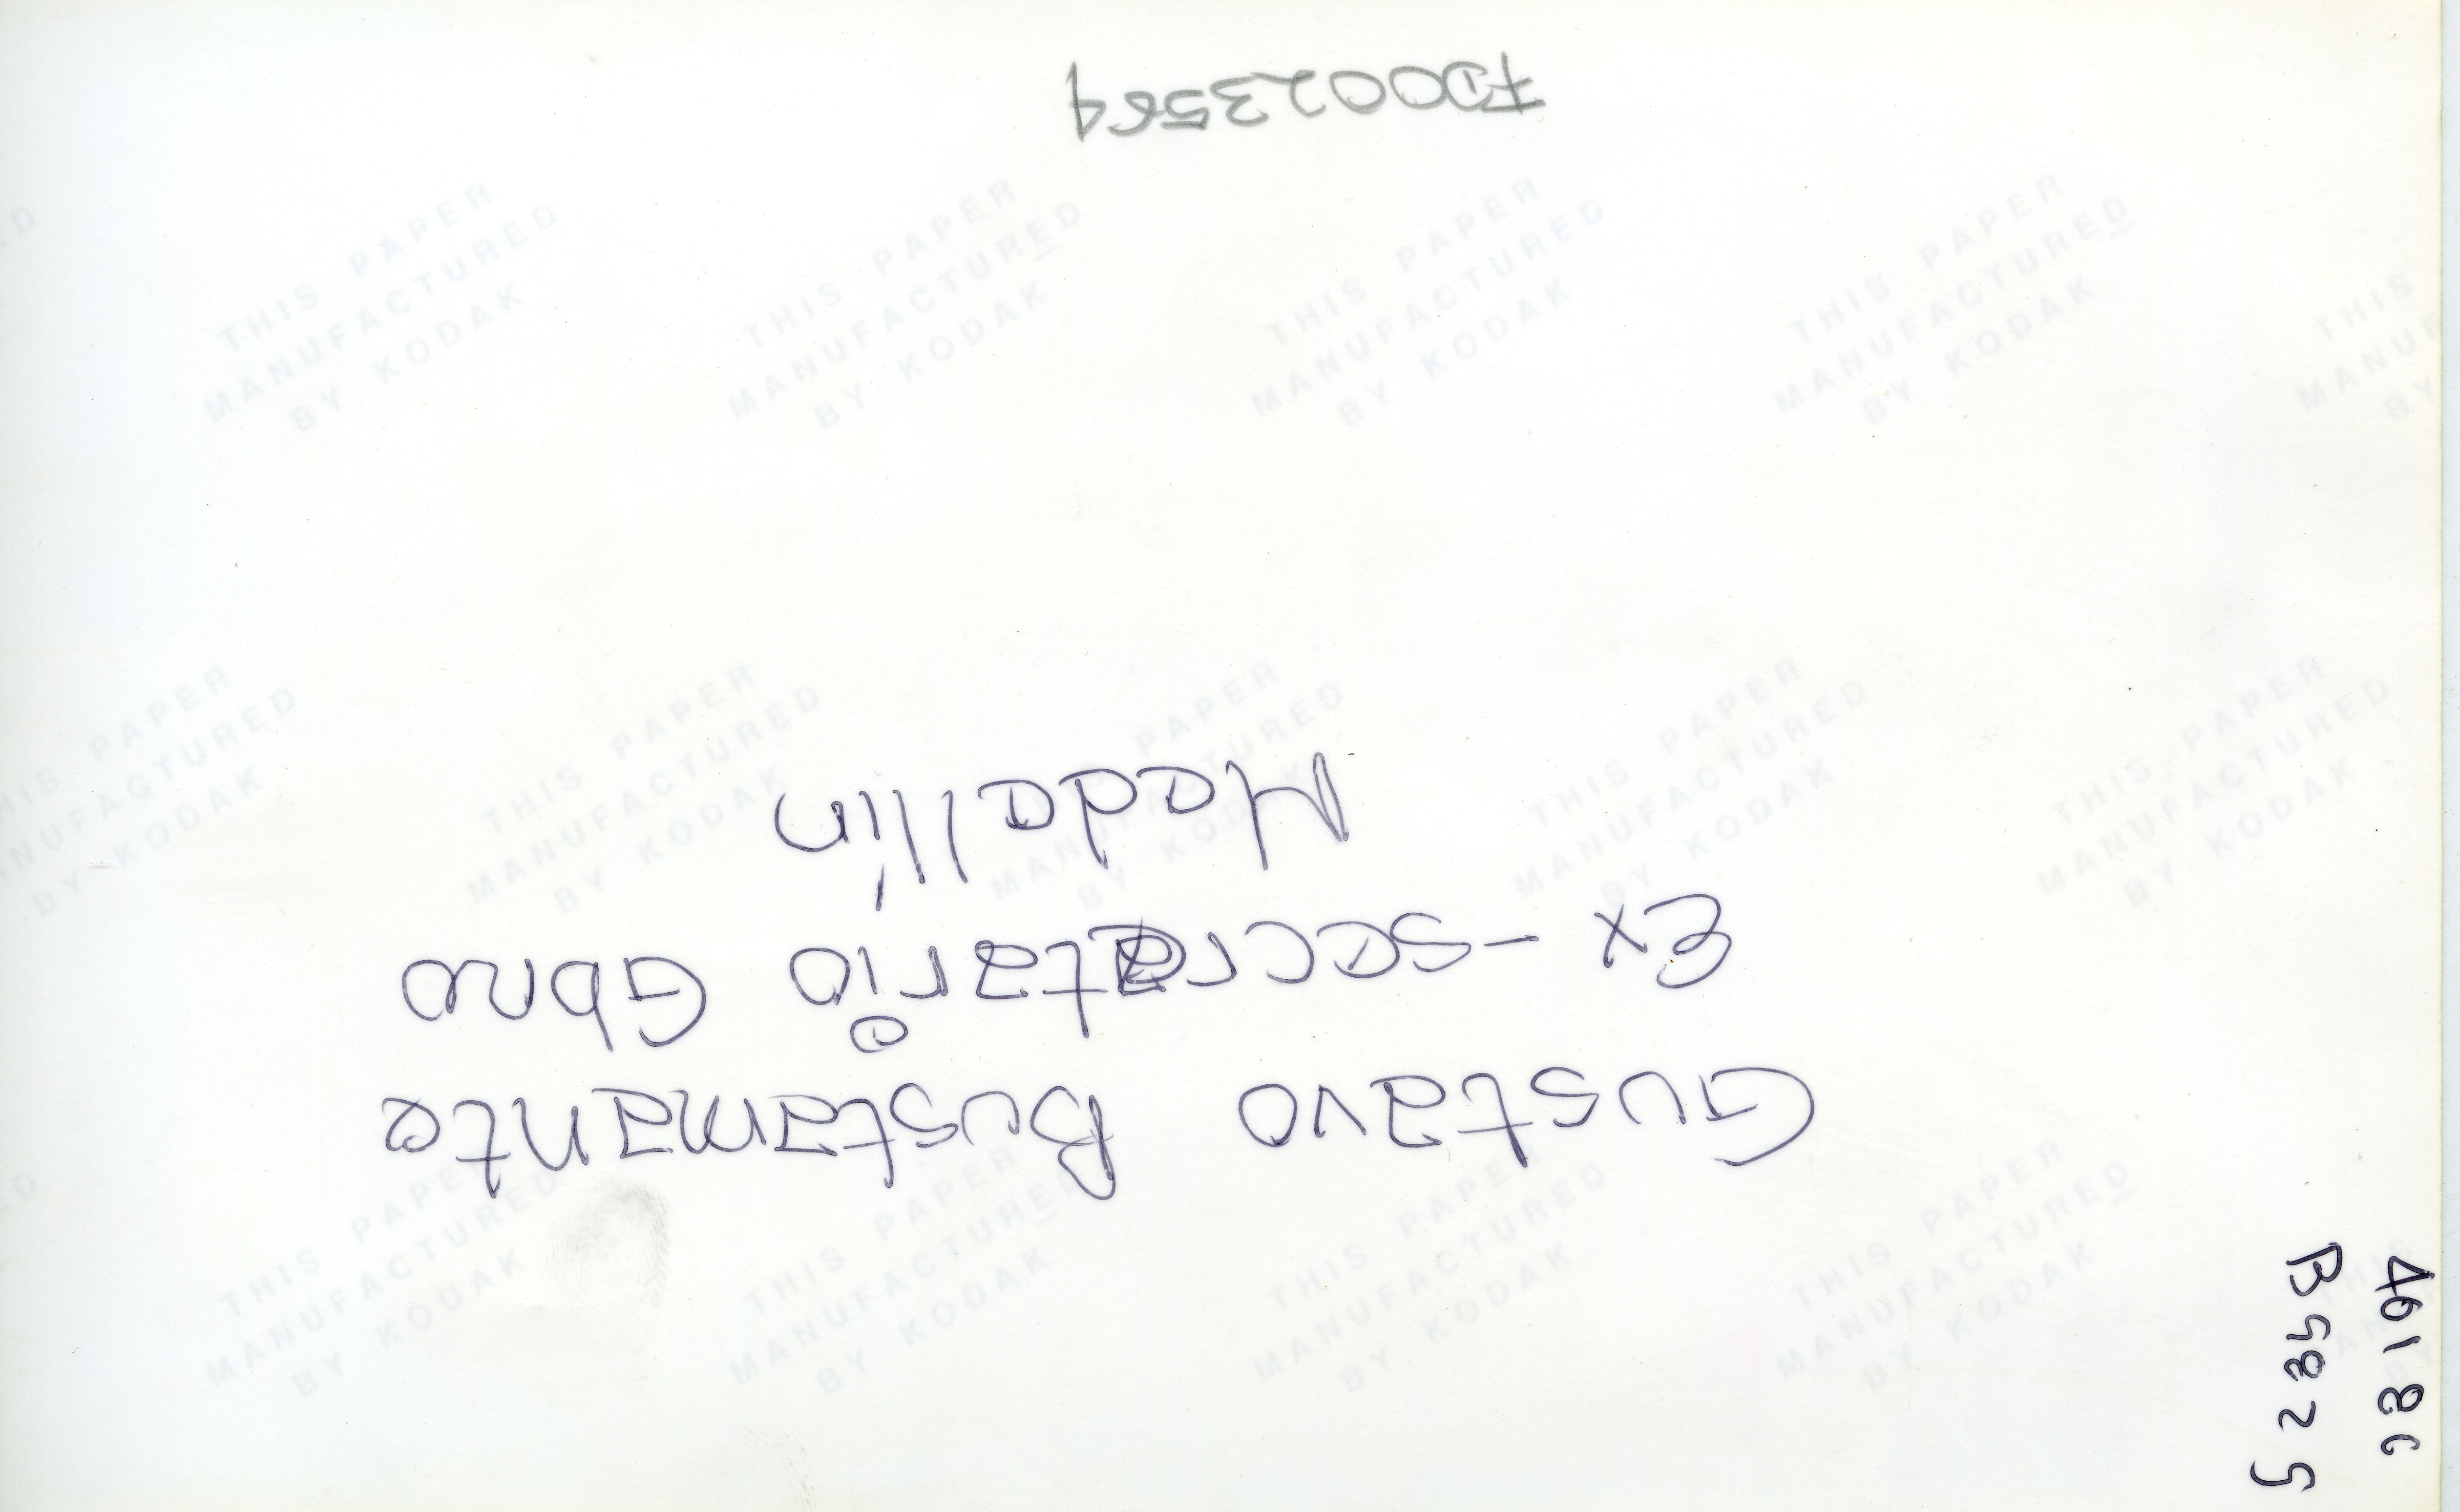 Gustavo Bustamante
Ex-secretario Gbno
Medellín
FD0023564
THIS PAPER
MANUFACTURED
BY KODAK